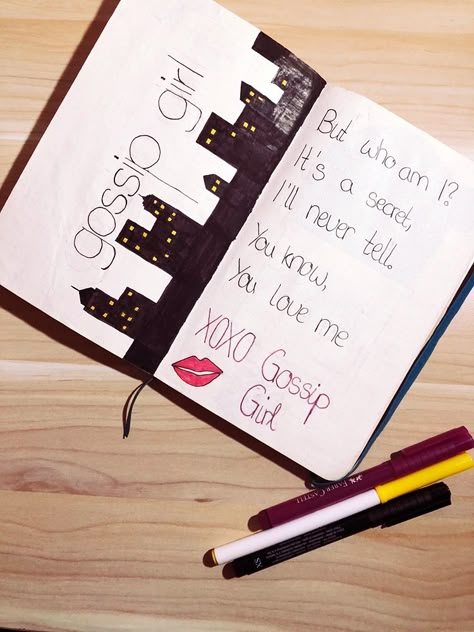 gossip girl
But who am I?
It's a secret,
I'll never tell.
You know,
You love me
XOXO Gossip
Girl
FABER-CASTELL